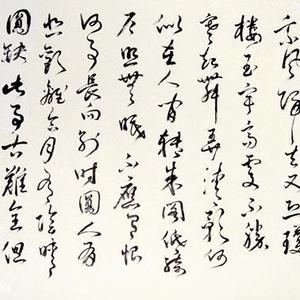 乘风歸去又恐瓊
楼玉宇高處不勝
寒起舞弄清影何
似在人间转朱阁低绮
户照無眠不應有恨
何事長向别时圓人有
悲歡離合月有陰晴
圓缺此事古難全但